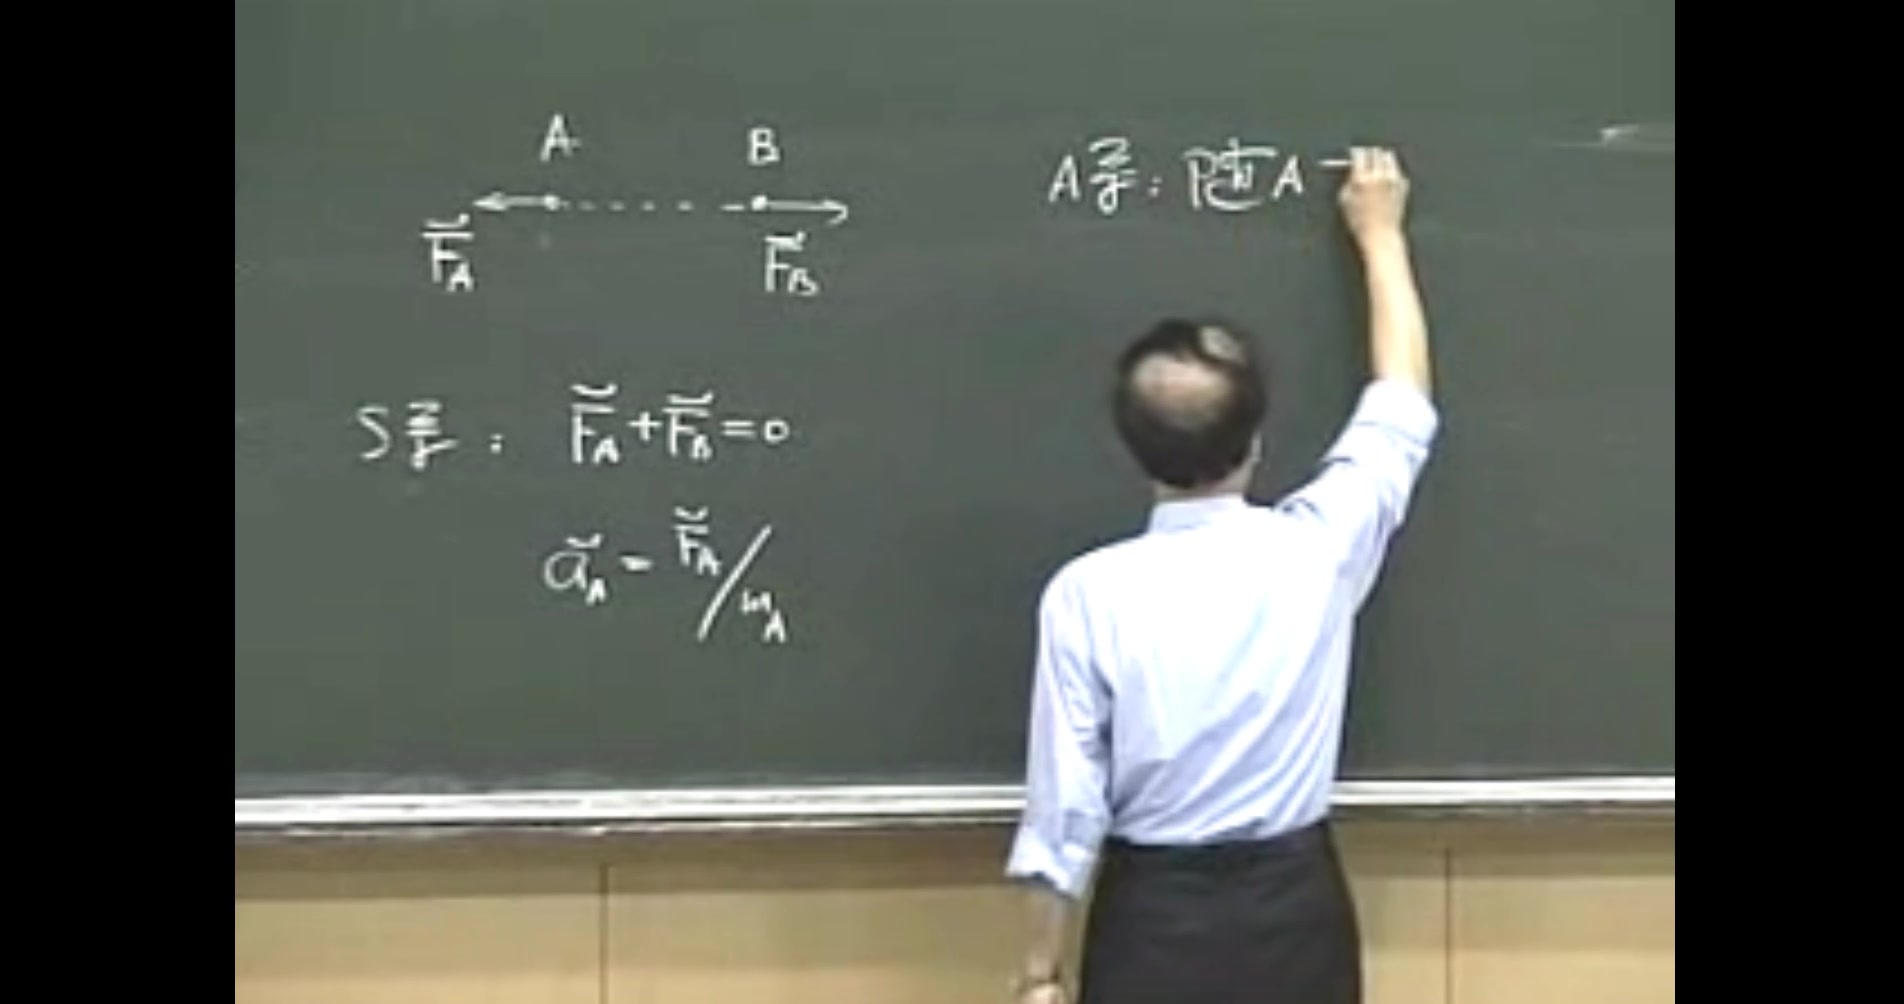 A B
$\vec{F}_A$ $\vec{F}_B$
S系: $\vec{F}_A + \vec{F}_B = 0$
$\vec{a}_A = \vec{F}_A / m_A$
A系: 随A一